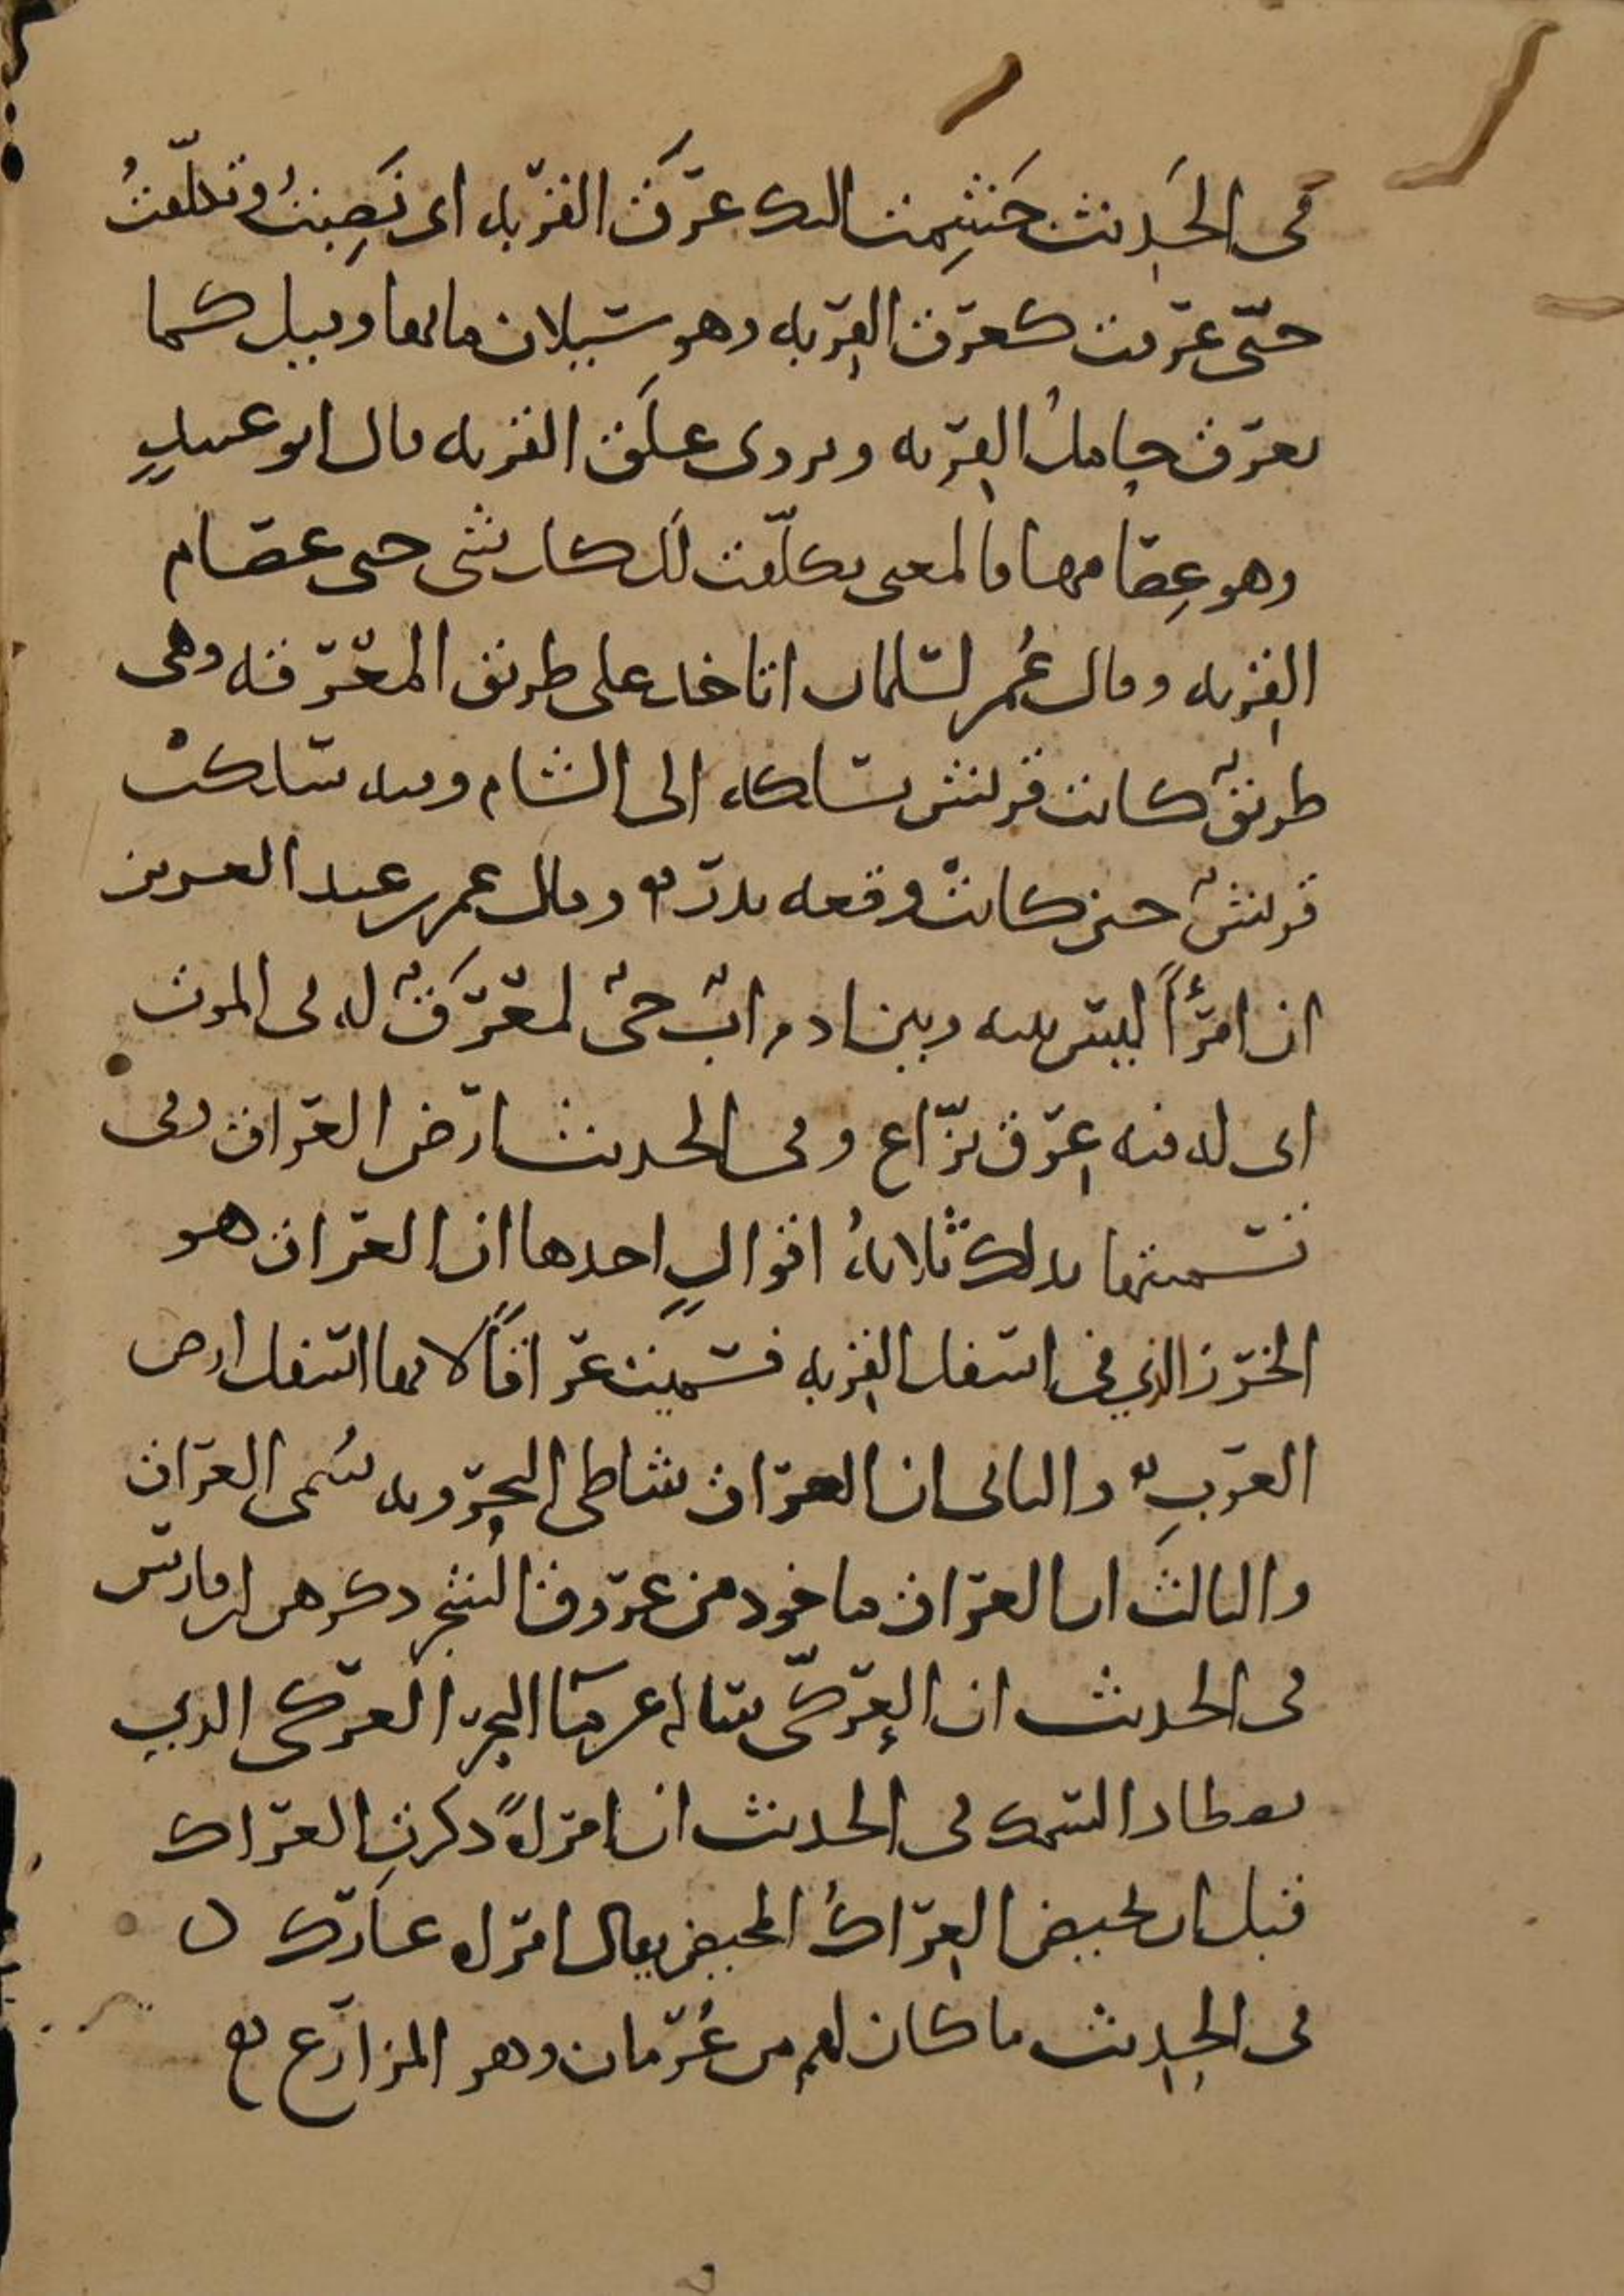 في الحديث جَشِمت اليك عَرَق القربه اى نَصِبتُ وتكلّفتُ
حتّى عرقت كعرق القربه وهو سيلان مائها وقيل كما
يعرق حامل القربه ويروى علَق القربه قال ابو عبيدٍ
وهو عِصامها فالمعنى تكلّفت لك كل شى حتى عصام
القربه وقال عُمر لسلمان اتاخذ على طريق المعرقه وهى
طريق كانت قريش تسلكه الى الشام وفيه سلكت
قريش حين كانت وقعه بدر وقال عمر بن عبد العزيز
ان امرًأ ليس بينه وبين ادم اب حى لمعرق له فى الموت
اى له فيه عرق نزّاع وفى الحديث ارض العراق وفى
تسميتها بذلك ثلاثهُ اقوالٍ احدها ان العراق هو
الخرز الذي في اسفل القربه فسميت عراقاً لانها اسفل ارض
العربِ والثانى ان العراق شاطى البحر وبه سُمى العراق
والثالث ان العراق ماخوذ من عروق الشجر ذكرهن ابن فارس
فى الحديث ان العركىّ سال عن ماء البحر العركى الذي
يصطاد السمك فى الحديث ان امراهً ذكرتِ العراك
قبل ان تحيض العراكُ المحيض يقال امراه عارك ن
فى الحديث ما كان لهم من عُرمان وهو المزارع